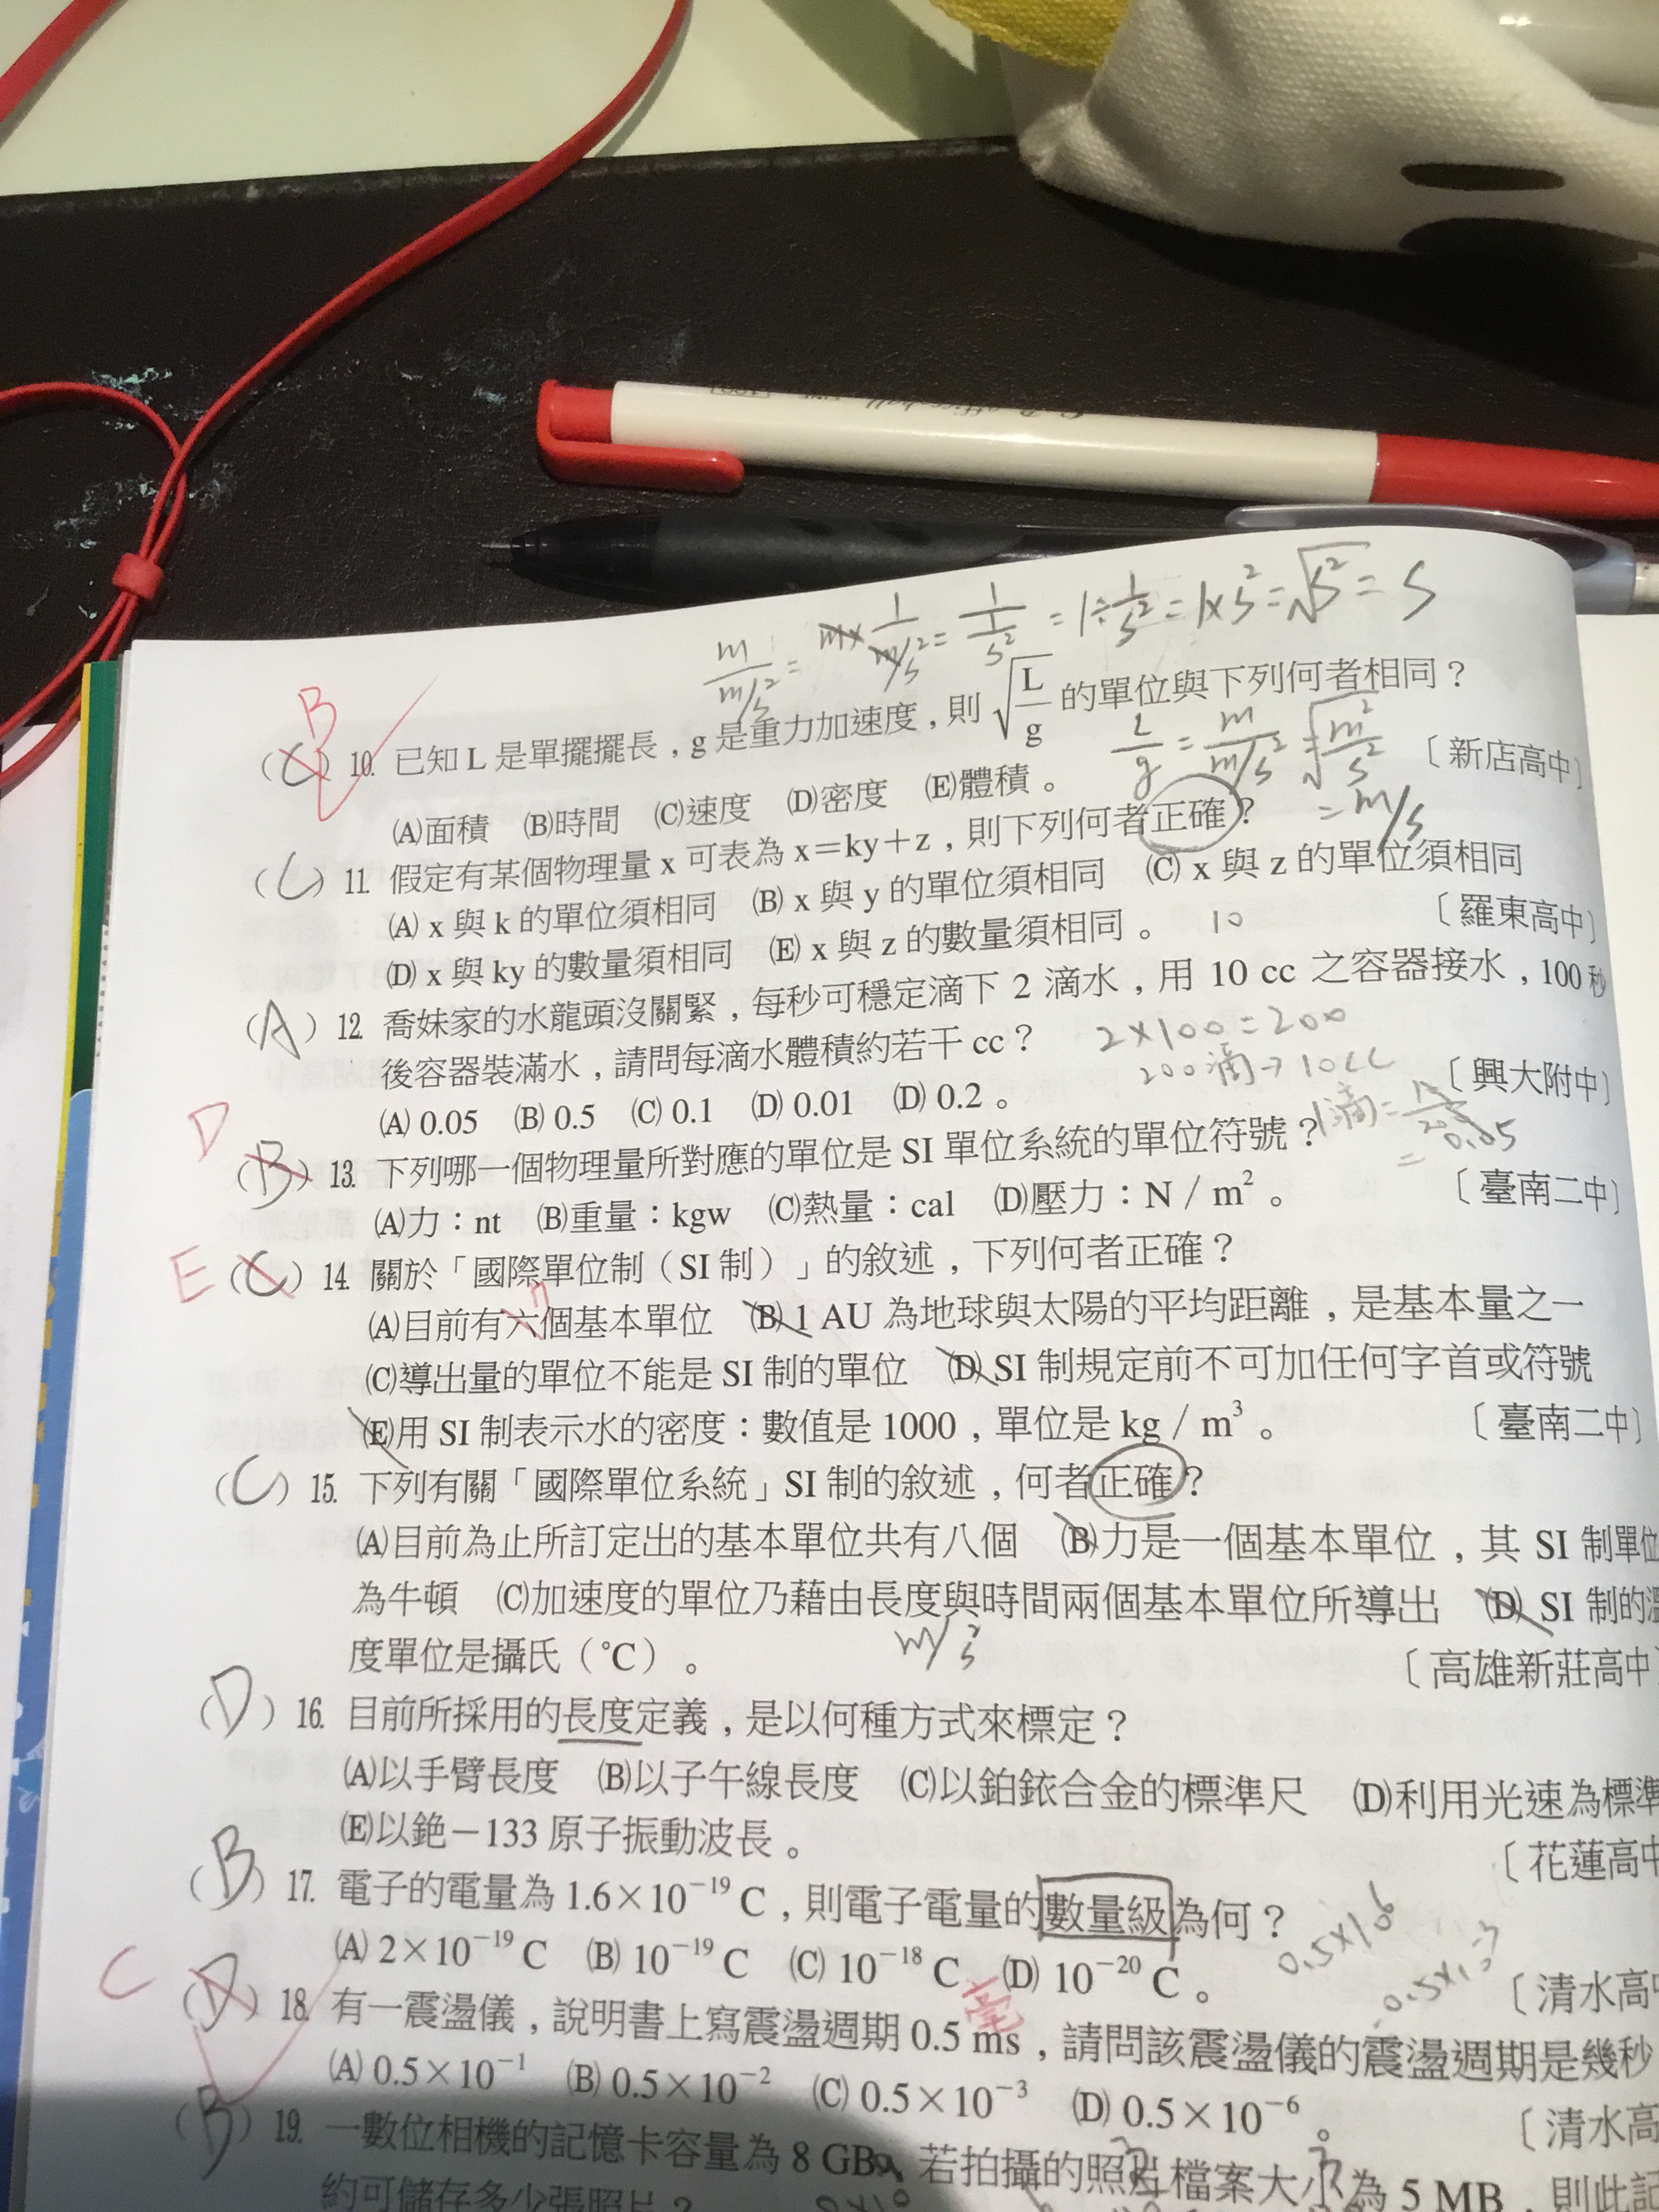 m/m/s² = m×1/m/s² = 1/1/s² = 1÷1/s² = 1×s² = √s² = s
B
(C) 10. 已知 L 是單擺擺長，g 是重力加速度，則 √L/g 的單位與下列何者相同？
L/g = m/m/s² = √m²/s²
= m/s
〔新店高中〕
(A)面積 (B)時間 (C)速度 (D)密度 (E)體積。
(C) 11. 假定有某個物理量 x 可表為 x=ky+z，則下列何者正確？
(A) x 與 k 的單位須相同 (B) x 與 y 的單位須相同 (C) x 與 z 的單位須相同
(D) x 與 ky 的數量須相同 (E) x 與 z 的數量須相同。 〔羅東高中〕
10
(A) 12. 喬妹家的水龍頭沒關緊，每秒可穩定滴下 2 滴水，用 10 cc 之容器接水，100 秒
後容器裝滿水，請問每滴水體積約若干 cc？
2×100=200
200滴→10cc
〔興大附中〕
(A) 0.05 (B) 0.5 (C) 0.1 (D) 0.01 (D) 0.2。
1滴=
= 0.05
D
(B) 13. 下列哪一個物理量所對應的單位是 SI 單位系統的單位符號？
(A)力：nt (B)重量：kgw (C)熱量：cal (D)壓力：N / m²。 〔臺南二中〕
E (C) 14. 關於「國際單位制（SI 制）」的敘述，下列何者正確？
7
(A)目前有六個基本單位 (B) 1 AU 為地球與太陽的平均距離，是基本量之一
(C)導出量的單位不能是 SI 制的單位 (D) SI 制規定前不可加任何字首或符號
(E)用 SI 制表示水的密度：數值是 1000，單位是 kg / m³。 〔臺南二中〕
(C) 15. 下列有關「國際單位系統」SI 制的敘述，何者正確？
(A)目前為止所訂定出的基本單位共有八個 (B)力是一個基本單位，其 SI 制單位
為牛頓 (C)加速度的單位乃藉由長度與時間兩個基本單位所導出 (D) SI 制的溫
度單位是攝氏（°C）。 〔高雄新莊高中〕
m/s²
(D) 16. 目前所採用的長度定義，是以何種方式來標定？
(A)以手臂長度 (B)以子午線長度 (C)以鉑銥合金的標準尺 (D)利用光速為標準
(E)以銫－133 原子振動波長。 〔花蓮高中
(B) 17. 電子的電量為 1.6×10⁻¹⁹ C，則電子電量的數量級為何？
(A) 2×10⁻¹⁹ C (B) 10⁻¹⁹ C (C) 10⁻¹⁸ C (D) 10⁻²⁰ C。 〔清水高中
C
毫
(D) 18. 有一震盪儀，說明書上寫震盪週期 0.5 ms，請問該震盪儀的震盪週期是幾秒
(A) 0.5×10⁻¹ (B) 0.5×10⁻² (C) 0.5×10⁻³ (D) 0.5×10⁻⁶。 〔清水高
(B) 19. 一數位相機的記憶卡容量為 8 GB，若拍攝的照片檔案大小為 5 MB，則此記
約可儲存多少張照片？